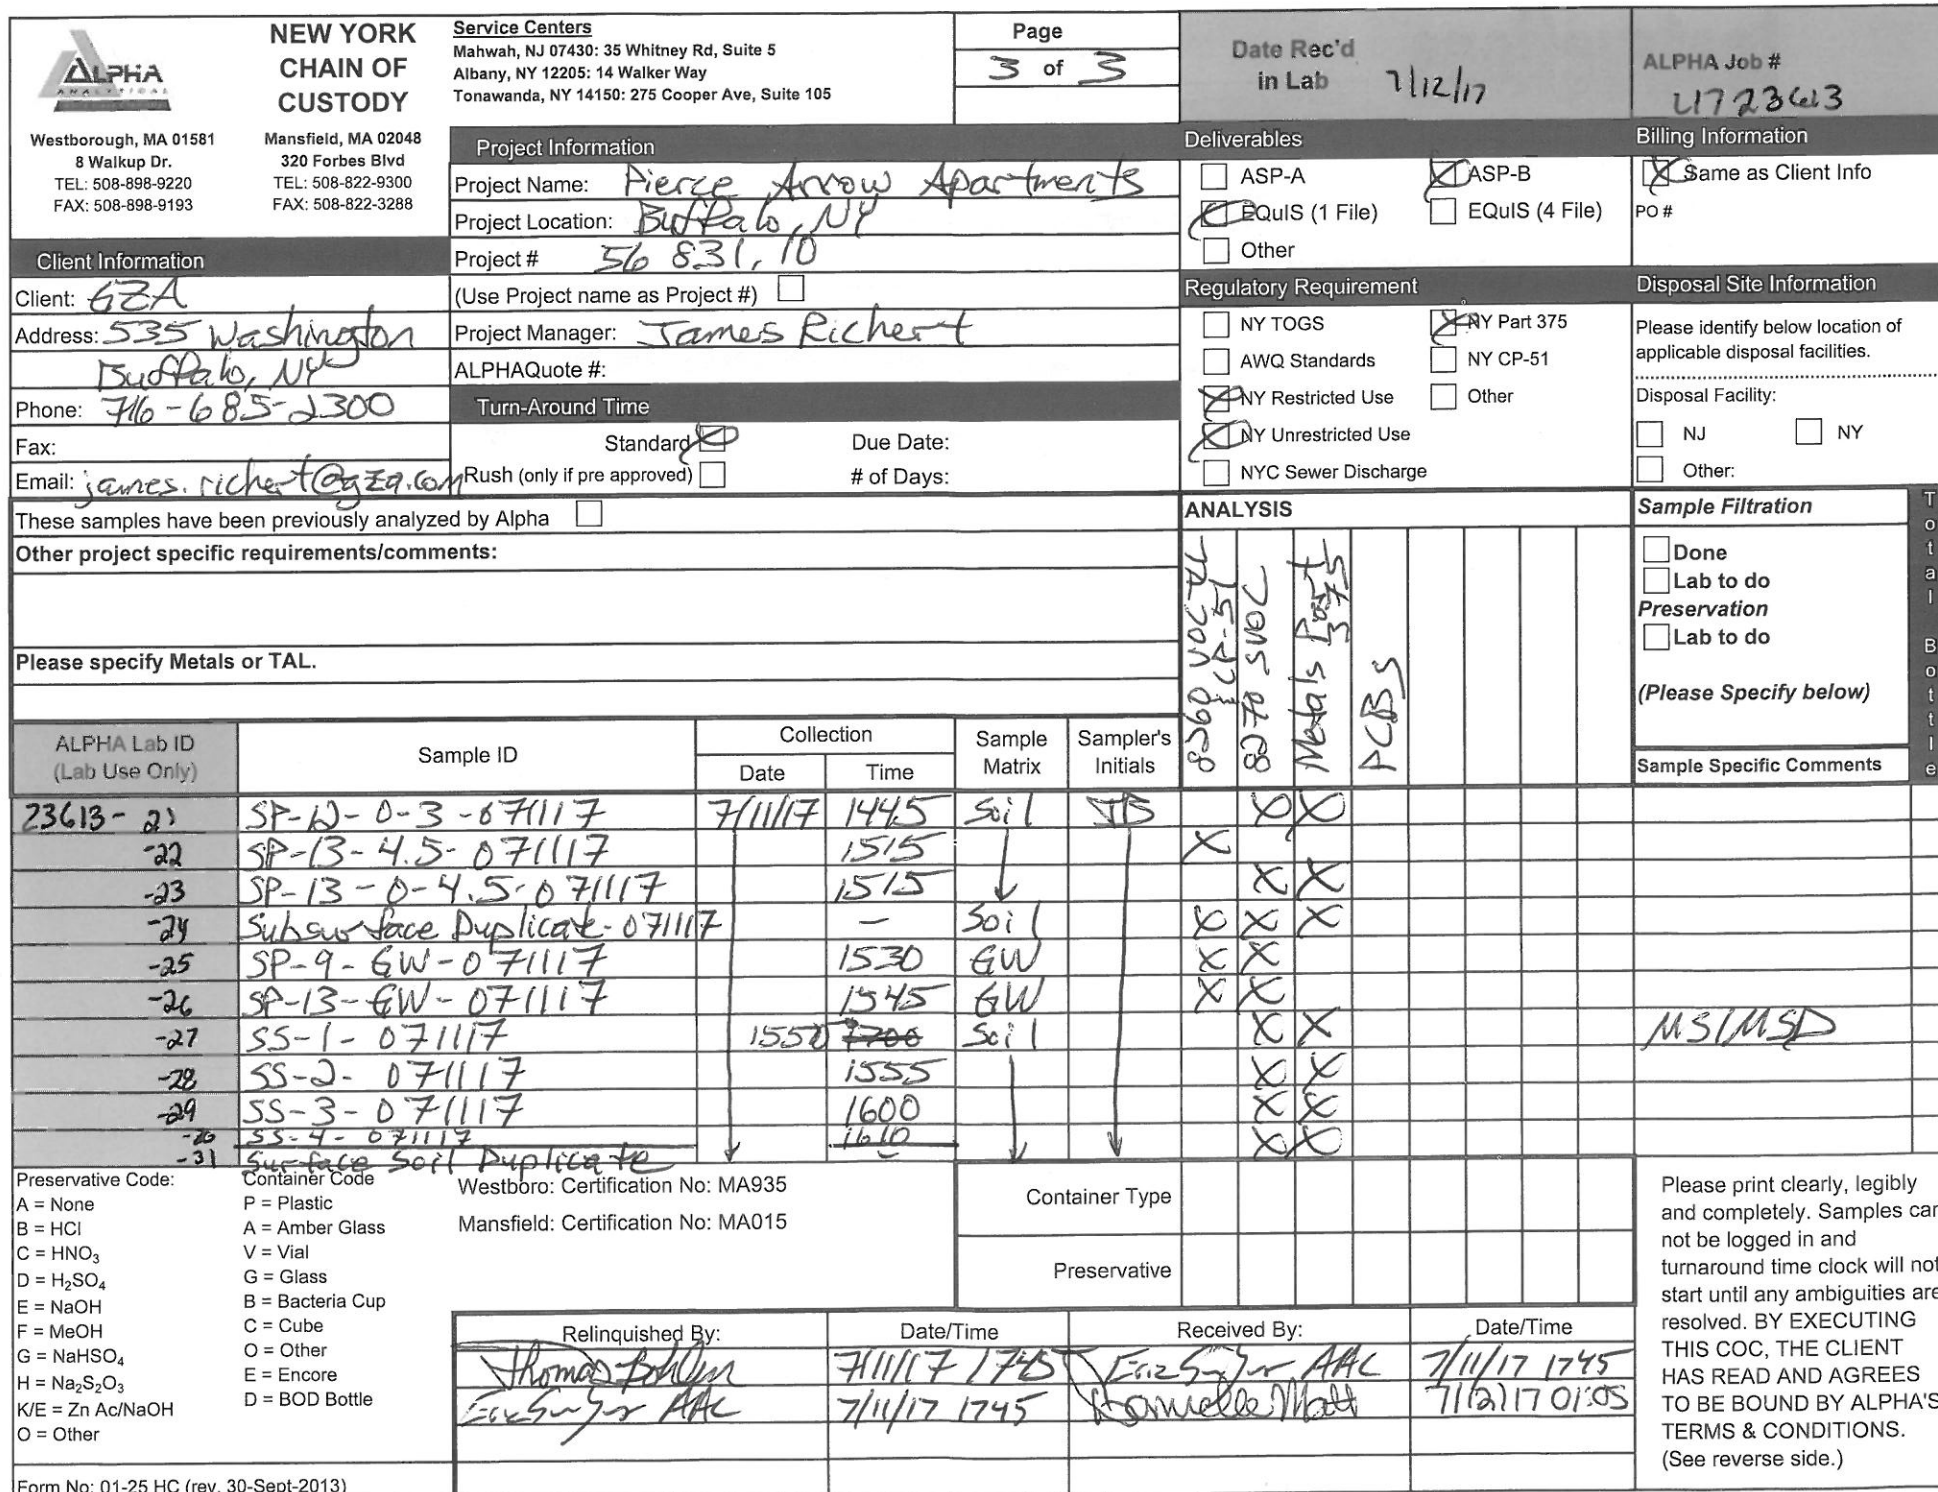 ALPHA
ANALYTICAL
Westborough, MA 01581
8 Walkup Dr.
TEL: 508-898-9220
FAX: 508-898-9193
NEW YORK
CHAIN OF
CUSTODY
Mansfield, MA 02048
320 Forbes Blvd
TEL: 508-822-9300
FAX: 508-822-3288
Service Centers
Mahwah, NJ 07430: 35 Whitney Rd, Suite 5
Albany, NY 12205: 14 Walker Way
Tonawanda, NY 14150: 275 Cooper Ave, Suite 105
Page
3 of 3
Date Rec'd
in Lab 7/12/17
ALPHA Job #
L1723613
Project Information
Project Name: Pierce Arrow Apartments
Project Location: Buffalo, NY
Project # 56831.10
(Use Project name as Project #)
Project Manager: James Richert
ALPHAQuote #:
Client Information
Client: GZA
Address: 535 Washington
Buffalo, NY
Phone: 716-685-2300
Fax:
Email: james.richert@gza.com
Turn-Around Time
Standard X Due Date:
Rush (only if pre approved) # of Days:
Deliverables
ASP-A X ASP-B
X EQuIS (1 File) EQuIS (4 File)
Other
Billing Information
X Same as Client Info
PO #
Regulatory Requirement
NY TOGS X NY Part 375
AWQ Standards NY CP-51
X NY Restricted Use Other
X NY Unrestricted Use
NYC Sewer Discharge
Disposal Site Information
Please identify below location of
applicable disposal facilities.
Disposal Facility:
NJ NY
Other:
These samples have been previously analyzed by Alpha
Other project specific requirements/comments:
Please specify Metals or TAL.
ANALYSIS
8260 VOC TCL
& CP-51
8270 SVOC
Metals Part
375
PCBs
Sample Filtration
Done
Lab to do
Preservation
Lab to do
(Please Specify below)
Total Bottle
ALPHA Lab ID
(Lab Use Only)
Sample ID
Collection
Date Time
Sample
Matrix
Sampler's
Initials
Sample Specific Comments
23613-21 SP-12-0-3-071117 7/11/17 1445 Soil TB X X
-22 SP-13-4.5-071117 1515 X
-23 SP-13-0-4.5-071117 1515 X X
-24 Subsurface Duplicate-071117 – Soil X X X
-25 SP-9-GW-071117 1530 GW X X
-26 SP-13-GW-071117 1545 GW X X
-27 SS-1-071117 1550 Soil X X MS/MSD
-28 SS-2-071117 1555 X X
-29 SS-3-071117 1600 X X
-30 SS-4-071117 1610 X X
-31 Surface Soil Duplicate –
Preservative Code:
A = None
B = HCl
C = HNO3
D = H2SO4
E = NaOH
F = MeOH
G = NaHSO4
H = Na2S2O3
K/E = Zn Ac/NaOH
O = Other
Container Code
P = Plastic
A = Amber Glass
V = Vial
G = Glass
B = Bacteria Cup
C = Cube
O = Other
E = Encore
D = BOD Bottle
Westboro: Certification No: MA935
Mansfield: Certification No: MA015
Container Type
Preservative
Relinquished By: Date/Time Received By: Date/Time
Thomas Bohlen 7/11/17 1745 AAL 7/11/17 1745
AAL 7/11/17 1745 7/12/17 01:05
Please print clearly, legibly
and completely. Samples can
not be logged in and
turnaround time clock will not
start until any ambiguities are
resolved. BY EXECUTING
THIS COC, THE CLIENT
HAS READ AND AGREES
TO BE BOUND BY ALPHA'S
TERMS & CONDITIONS.
(See reverse side.)
Form No: 01-25 HC (rev. 30-Sept-2013)